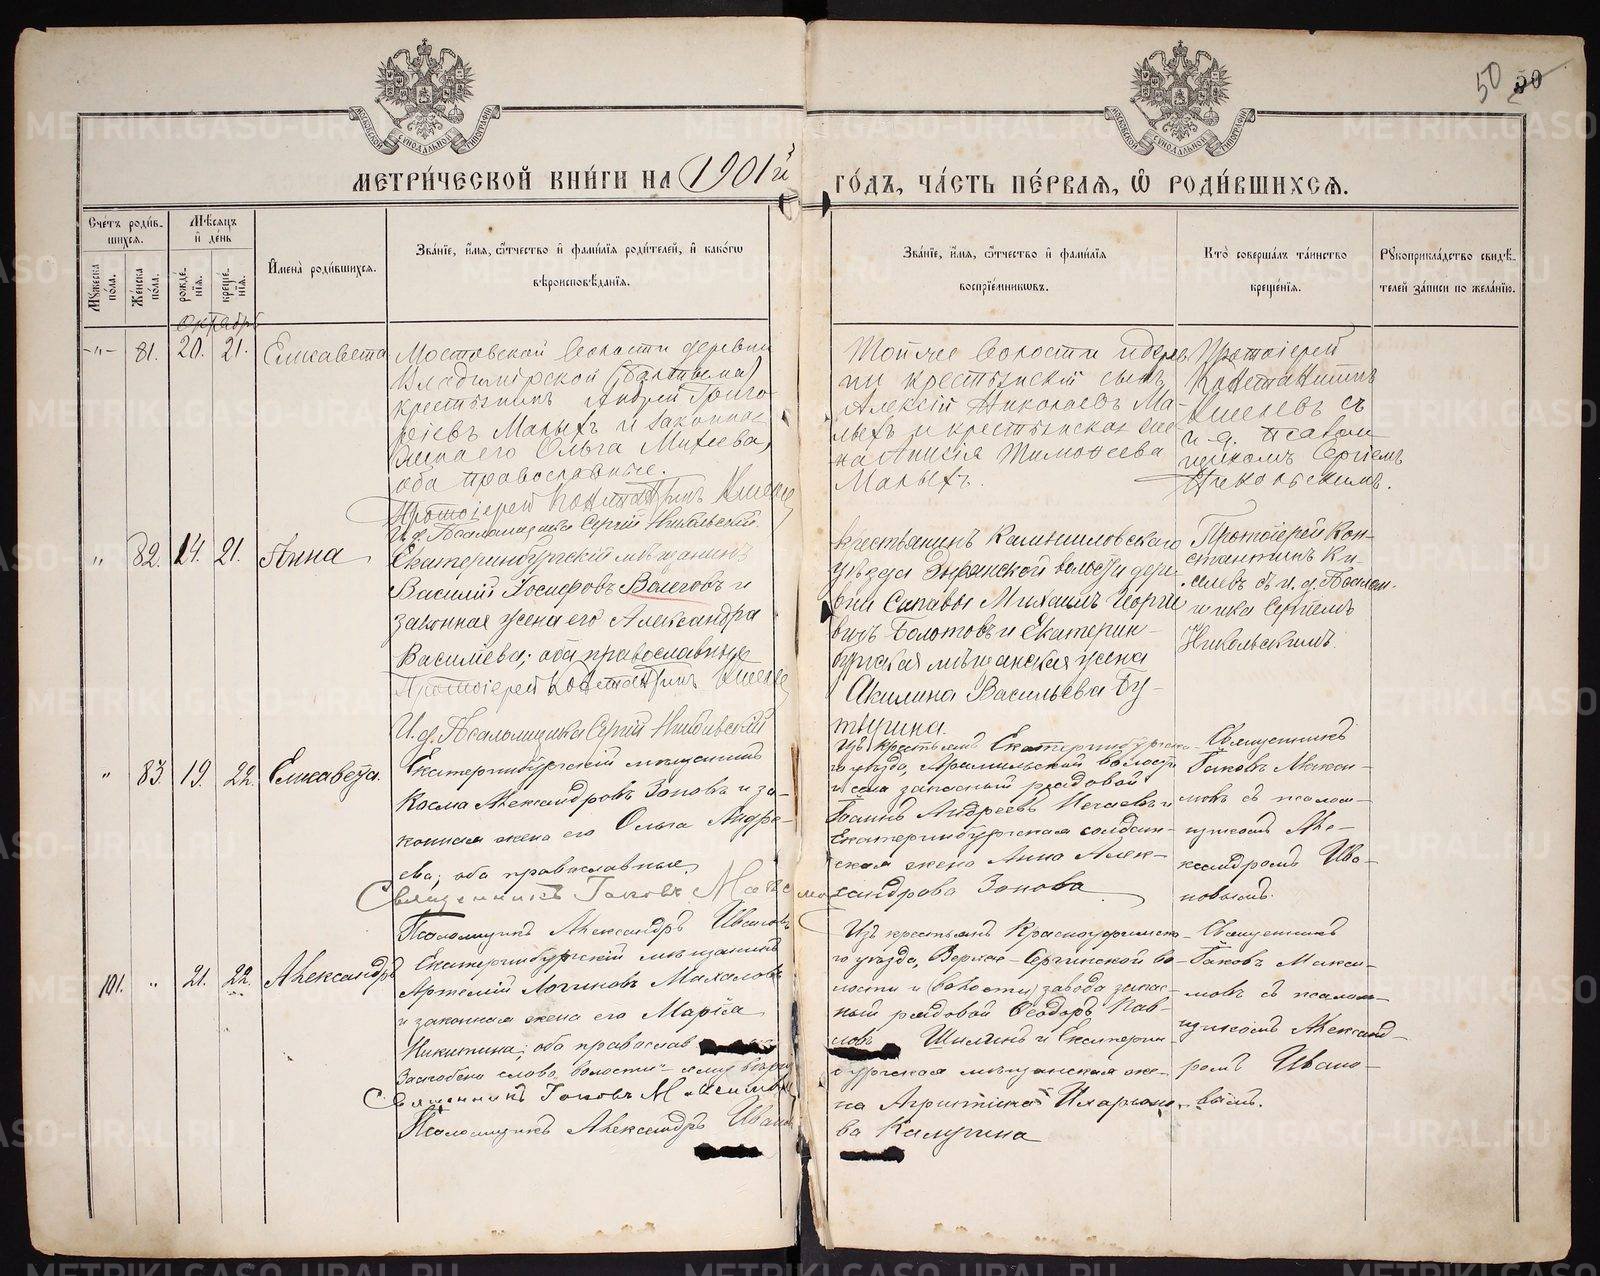 50 50
МОСКОВСКОЙ СУНОДАЛЬНОЙ ТИПОГРАФІИ
МОСКОВСКОЙ СУНОДАЛЬНОЙ ТИПОГРАФІИ
МЕТРИ́ЧЕСКОЙ КНИ́ГИ НА 1901й ГО́ДЪ, ЧА́СТЬ ПЕ́РВАЯ, Ѽ РОДИ́ВШИХСЯ.
Сче́тъ роди́в-
шихся.
Мꙋжеска по́ла.
Же́нска по́ла.
Мѣ́сяцъ
и҆ де́нь
рожде́-
нїя.
креще́-
нїя.
И҆мена̀ роди́вшихся.
Зва́нїе, и҆́мя, ѻ҆́тчество и҆ фами́лїя роди́телей, и҆ како́гѡ
вѣроисповѣ́данїя.
Зва́нїе, и҆́мя, ѻ҆́тчество и҆ фами́лїя
воспрїе́мникѡвъ.
Кто̀ соверша́лъ та́инство
креще́нїя.
Рꙋкоприкла́дство свидѣ́-
телей за́писи по жела́нїю.
Октябрь
-"- 81. 20. 21. Елисавета
Мостовской волости деревни
Владимірской (Балтыма)
крестьянинъ Андрей Григо-
ріевъ Малыхъ и законная
жена его Ольга Михеева,
оба православные.
Протоіерей Константинъ
И. д. Псаломщика Сергій Никольскій.
Той же волости и дерев-
ни крестьянскій сынъ
Алексій Николаевъ Ма-
лыхъ и крестьянская же-
на Анисія Тимоѳеева
Малыхъ.
Протоіерей
Константинъ
съ
и. д. псалом-
щикомъ Сергіемъ
Никольскимъ.
" 82. 14. 21. Анна
Екатеринбургскій мѣщанинъ
Василій Іосифовъ Валеговъ и
законная жена его Александра
Василіева; оба православные
Протоіерей Константинъ
И. д. Псаломщика Сергій Никольскій
крестьянинъ Камышловскаго
уѣзда волости дере-
вни Михаилъ Георгіе-
вичъ Болотовъ и Екатерин-
бургская мѣщанская жена
Акилина Васильева Бу-
тыгина.
Протоіерей Кон-
стантинъ Ки-
селевъ съ и. д. Псалом-
щика Сергіемъ
Никольскимъ.
" 83. 19. 22. Елисавета.
Екатеринбургскій мѣщанинъ
Косма Александровъ Зоновъ и за-
конная жена его Ольга Андре-
ева; оба православные,
Священникъ Іаковъ Максимовъ
Псаломщикъ Александръ Ивановъ
Изъ крестьянъ Екатеринбургска-
го уѣзда, Арамильской волости
и села запасный рядовой
Іоаннъ Андреевъ и
Екатеринбургская солдат-
ская жена Анна Алек-
сандрова Зонова.
Священникъ
Іаковъ Макси-
мовъ съ псалом-
щикомъ Але-
ксандромъ Ива-
новымъ.
101. " 21. 22. Александръ
Екатеринбургскій мѣщанинъ
Артемій Логиновъ Михаловъ
и законная жена его Марія
Никитина; оба православ
слово "волости"
Священникъ Іаковъ Максимовъ
Псаломщикъ Александръ Иванов
Изъ крестьянъ Красноуфимска-
го уѣзда, Верхне-Сергинской во-
лости и (волости) завода запас-
ный рядовой Ѳеодоръ Пав-
ловъ Шилинъ и Екатерин-
бургская мѣщанская же-
на Иларіоно-
ва Калугина
Священникъ
Іаковъ Макси-
мовъ съ псалом-
щикомъ Александ-
ромъ Ивано-
вымъ.
METRIKI.GASO-URAL.RU